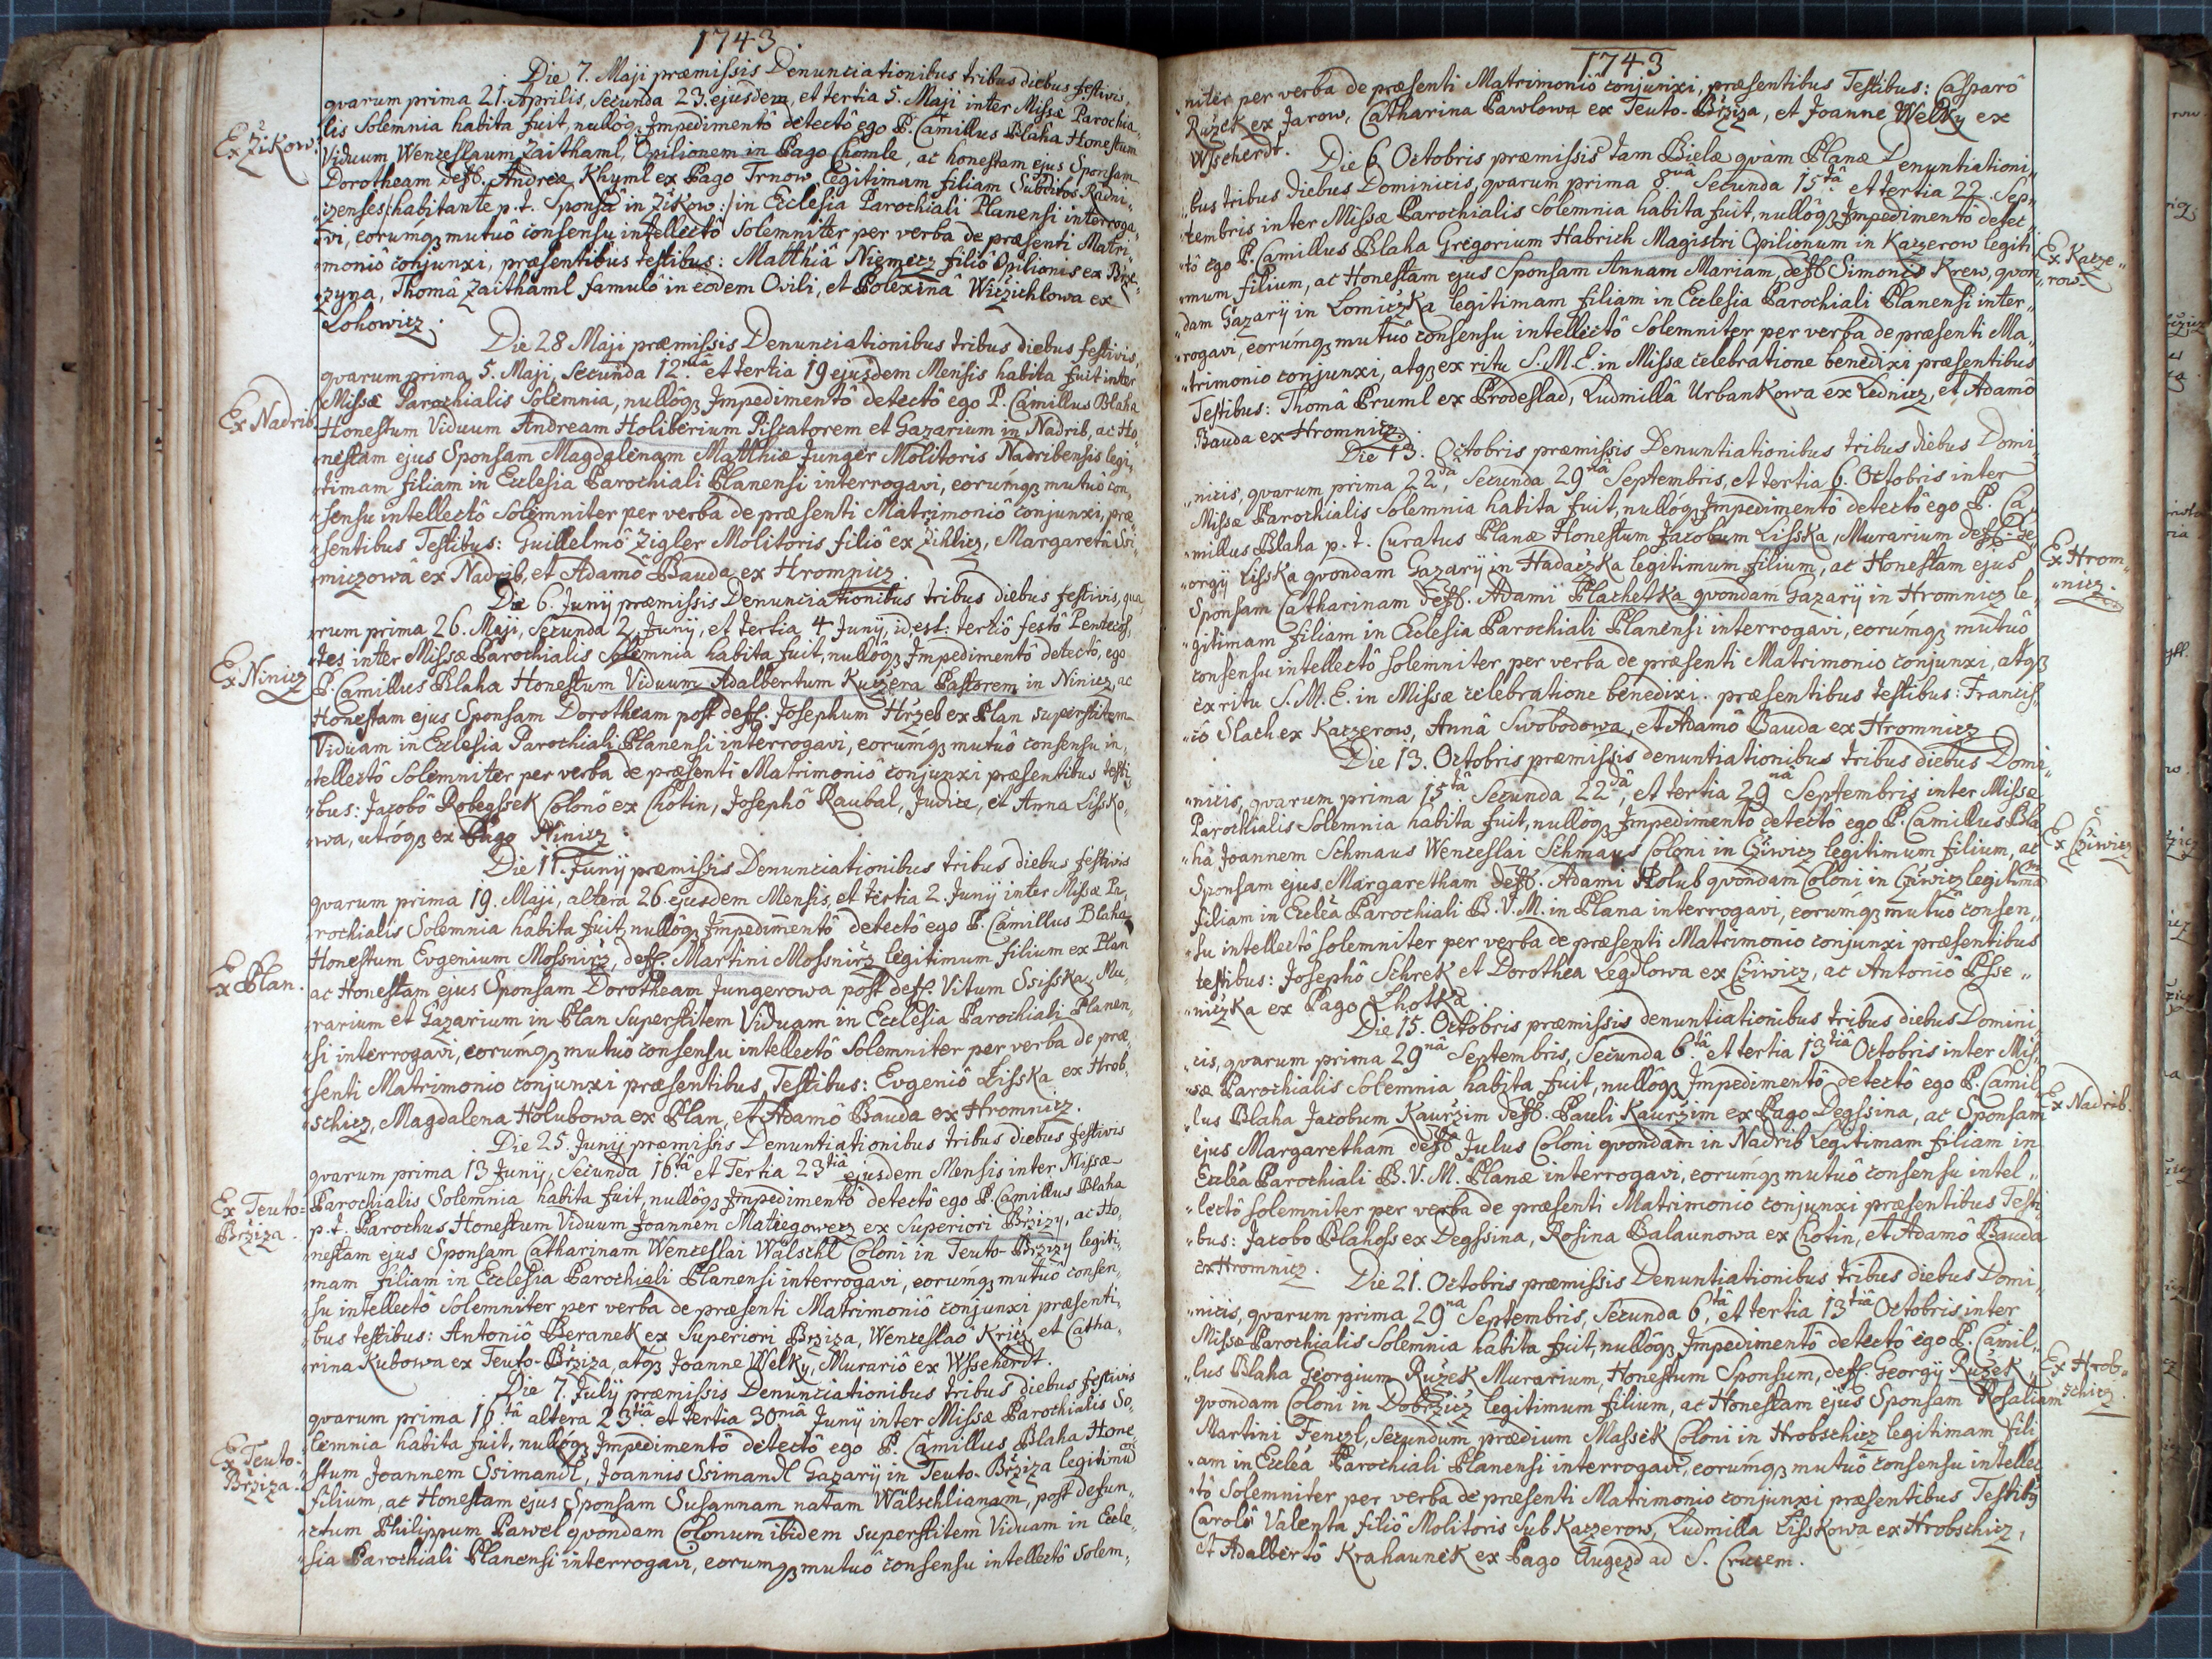 1743.
Die 7. Maji præmissis Denunciationibus tribus diebus festivis,
qvarum prima 21. Aprilis, Secunda 23. ejusdem, et tertia 5. Maji inter Missæ Parochia„
lis Solemnia habita fuit, nullôq₃ Impedimentô detectô ego P. Camillus Blaha Honestum
Ex Žikow.
Viduum Wenceslaum Zaithaml, Opilionem in Pago Chomle, ac honestam ejus Sponsam
Dorotheam deff. Andreæ Khyml ex Pago Trnow legitimam filiam Subditos Radni„
„czenses /:habitante p. t. Sponsâ in Žikow:/ in Ecclesia Parochiali Planensi interroga„
„vi, eorúmq₃ mutuô consensu intellectô Solemniter per verba de præsenti Matri„
„moniô conjunxi, præsentibus testibus: Matthiâ Niemecz filiô Opilionis ex Brže„
„zyna, Thomâ Zaithaml famulô in eodem Ovili, et Polexinâ Wiczichlowa ex
Lohowicz.
Die 28 Maji præmissis Denunciationibus tribus diebus festivis,
qvarum prima 5. Maji, Secunda 12.mâ et tertia 19 ejusdem Mensis habita fuit inter
Missæ Parochialis Solemnia, nullôq₃ Impedimentô detectô ego P. Camillus Blaha
Ex Nadrib
Honestum Viduum Andream Holiberium Piscatorem et Gazarium in Nadrib, ac Ho„
„nestam ejus Sponsam Magdalenam Matthiæ Junger Molitoris Nadribensis legi„
„timam filiam in Ecclesia Parochiali Planensi interrogavi, eorúmq₃ mutuô con„
„sensu intellectô Solemniter per verba de præsenti Matrimoniô conjunxi, præ„
„sentibus Testibus: Guillelmô Zigler Molitoris filiô ex Zichlicz, Margaretâ Ssi„
„miczowâ ex Nadrib, et Adamô Bauda ex Hromnicz
Die 6. Junij præmissis Denunciationibus tribus diebus festivis, qua„
„rum prima 26. Maji, Secunda 2. Junij, et tertia 4 Junij, id est: tertiô festô Pentecos„
„tes inter Missæ Parochialis Solemnia habita fuit, nullôq₃ Impedimentô detectô, ego
Ex Ninicz
P. Camillus Blaha Honestum Viduum Adalbertum Kuczera Pastorem in Ninicz, ac
Honestam ejus Sponsam Dorotheam post deff. Josephum Hržeb ex Plan superstitem
Viduam in Ecclesia Parochiali Planensi interrogavi, eorúmq₃ mutuô consensu in„
„tellectô Solemniter per verba de præsenti Matrimoniô conjunxi præsentibus testi„
„bus: Jacobô Robegssek Colonô ex Chotin, Josephô Raubal, Judice, et Anna Lissko„
„wa, utróq₃ ex Pago Ninicz.
Die 11. Junij præmissis Denunciationibus tribus diebus festivis
qvarum prima 19. Maji, altera 26 ejusdem Mensis, et tertia 2. Junij inter Missæ Pa„
„rochialis Solemnia habita fuit, nullôq₃ Impedimentô detectô ego P. Camillus Blaha
Honestum Evgenium Mossnirz, deff. Martini Mossnirz legitimum filium ex Plan
Ex Plan.
ac Honestam ejus Sponsam Dorotheam Jungerowa post deff. Vitum Ssisska, Mu„
„rarium et Gazarium in Plan Superstitem Viduam in Ecclesia Parochiali Planen„
„si interrogavi, eorúmq₃ mutuô consensu intellectô Solemniter per verba de præ„
„senti Matrimonio conjunxi præsentibus Testibus: Evgeniô Lisska ex Hrob„
„schicz, Magdalena Holubowa ex Plan, et Adamô Bauda ex Hromnicz.
Die 25. Junij præmissis Denuntiationibus tribus diebus festivis
qvarum prima 13 Junij, Secunda 16tâ et Tertia 23tiâ ejusdem Mensis inter Missæ
Ex Teuto=
Bržiza.
Parochialis Solemnia habita fuit, nullôq₃ Impedimentô detectô ego P. Camillus Blaha
p. t. Parochus Honestum Viduum Joannem Matiegowecz ex Superiori Bržizy, ac Ho„
„nestam ejus Sponsam Catharinam Wenceslai Wälschl Coloni in Teuto-Bržizy legiti„
„mam filiam in Ecclesia Parochiali Planensi interrogavi, eorúmq₃ mutuô consen„
„su intellectô Solemniter per verba de præsenti Matrimoniô conjunxi præsenti„
„bus testibus: Antoniô Beranek ex Superiori Bržiza, Wenceslaô Kricz, et Catha„
„rina Kubowa ex Teuto-Bržiza, atq₃ Joanne Welky, Murariô ex Wsseherdt.
Die 7. Julij præmissis Denunciationibus tribus diebus festivis
qvarum prima 16.tâ altera 23tiâ et tertia 30mâ Junij inter Missæ Parochialis So„
„lemnia habita fuit, nullôq₃ Impedimentô detectô ego P. Camillus Blaha Hone„
Ex Teuto-
Bržiza.
„stum Joannem Ssimandl, Joannis Ssimandl Gazarij in Teuto-Bržiza legitimum
filium, ac Honestam ejus Sponsam Susannam natam Wälschlianam, post defun„
„ctum Philippum Pawel qvondam Colonum ibidem superstitem Viduam in Eccle„
„sia Parochiali Planensi interrogavi, eorumq₃ mutuô consensu intellectô solem„
1743
niter per verba de præsenti Matrimoniô conjunxi, præsentibus Testibus: Casparô
Ružek ex Jarow, Catharina Pawlowa ex Teuto-Bržiza, et Joanne Welky ex
Wsseherdt.
Die 6 Octobris præmissis tam Bielæ qvàm Planæ Denuntiationi„
„bus tribus diebus Dominicis, qvarum prima 8vâ Secunda 15tâ et tertia 22. Sep„
„tembris inter Missæ Parochialis Solemnia habita fuit, nullôq₃ Impedimentô detec„
„tô ego P. Camillus Blaha Gregorium Habrich Magistri Opilionum in Kaczerow legiti„
Ex Kacze„
„row.
„mum filium, ac Honestam ejus Sponsam Annam Mariam, deff. Simonis Krew, qvon„
„dam Gazarij in Lomiczka legitimam filiam in Ecclesia Parochiali Planensi inter„
„rogavi, eorúmq₃ mutuô consensu intellectô Solemniter per verba de præsenti Ma„
„trimonio conjunxi, atq₃ ex ritu S. M. E. in Missæ celebratione benedixi præsentibus
Testibus: Thomâ Pruml ex Prodeslad, Ludmillâ Urbankowa ex Lednicz, et Adamô
Bauda ex Hromnicz.
Die 13. Octobris præmissis Denuntiationibus tribus diebus Domi„
„nicis, qvarum prima 22dâ, Secunda 29nâ Septembris, et tertia 6. Octobris inter
Missæ Parochialis Solemnia habita fuit, nullôq₃ Impedimentô detectô ego P. Ca„
„millus Blaha p. t. Curatus Planæ Honestum Jacobum Lisska, Murarium deff. Ge„
„orgij Lisska qvondam Gazarij in Hadaczka legitimum filium, ac Honestam ejus
Ex Hrom„
„nicz.
Sponsam Catharinam deff. Adami Plachetka qvondam Gazarij in Hromnicz le„
„gitimam filiam in Ecclesia Parochiali Planensi interrogavi, eorúmq₃ mutuô
consensu intellectô solemniter per verba de præsenti Matrimonio conjunxi, atq₃
ex ritu S. M. E. in Missæ celebratione benedixi. præsentibus testibus: Francis„
„cô Slach ex Kaczerow, Annâ Swobodowa, et Adamô Bauda ex Hromnicz
Die 13. Octobris præmissis denuntiationibus tribus diebus Domi„
„nicis, qvarum prima 15tâ Secunda 22dâ, et tertia 29nâ Septembris inter Missæ
Parochialis Solemnia habita fuit, nullôq₃ Impedimentô detectô ego P. Camillus Bla„
Ex Cžiwicz
„ha Joannem Schmaus Wenceslai Schmaus Coloni in Cžiwicz legitimum filium, ac
Sponsam ejus Margaretham deff. Adami Holub qvondam Coloni in Cžiwicz legitimam
filiam in Ecclêa Parochiali B. V. M. in Plana interrogavi, eorúmq₃ mutuô consen„
„su intellectô solemniter per verba de præsenti Matrimonio conjunxi præsentibus
testibus: Josephô Schrek et Dorothea Legdlowa ex Cžiwicz, ac Antoniô Psse„
„niczka ex Pago Lhotka.
Die 15. Octobris præmissis denuntiationibus tribus diebus Domini„
„cis, qvarum prima 29nâ Septembris, Secunda 6.tâ et tertia 13tiâ Octobris inter Mis„
„sæ Parochialis Solemnia habita fuit, nullôq₃ Impedimentô detectô ego P. Camil„
Ex Nadrib.
„lus Blaha Jacobum Kauržim deff. Pauli Kauržim ex Pago Degssina, ac Sponsam
ejus Margaretham deff. Julus Coloni qvondam in Nadrib Legitimam filiam in
Ecclêa Parochiali B. V. M. Planæ interrogavi, eorúmq₃ mutuô consensu intel„
„lectô solemniter per verba de præsenti Matrimonio conjunxi præsentibus Testi„
„bus: Jacobo Blahoss ex Degssina, Rosina Balaunowa ex Chotin, et Adamô Bauda
ex Hromnicz.
Die 21. Octobris præmissis Denuntiationibus tribus diebus Domi„
„nicis, qvarum prima 29na Septembris, Secunda 6tâ, et tertia 13tiâ Octobris inter
Missæ Parochialis Solemnia habita fuit, nullôq₃ Impedimentô detectô ego P. Camil„
Ex Hrob„
„schicz.
„lus Blaha Georgium Ružek Murarium, Honestum Sponsum, deff. Georgij Ružek
qvondam Coloni in Dobržicz legitimum filium, ac Honestam ejus Sponsam Rosaliam
Martini Fenczl, Secundum prædium Massek Coloni in Hrobschicz legitimam fili„
„am in Ecclêa Parochiali Planensi interrogavi, eorúmq₃ mutuô consensu intellec„
„tô Solemniter per verba de præsenti Matrimonio conjunxi præsentibus Testibus
Carolô Valenta filiô Molitoris Sub Kaczerow, Ludmilla Lisskowa ex Hrobschicz,
et Adalbertô Krahaunek ex Pago Augezd ad S. Crucem.